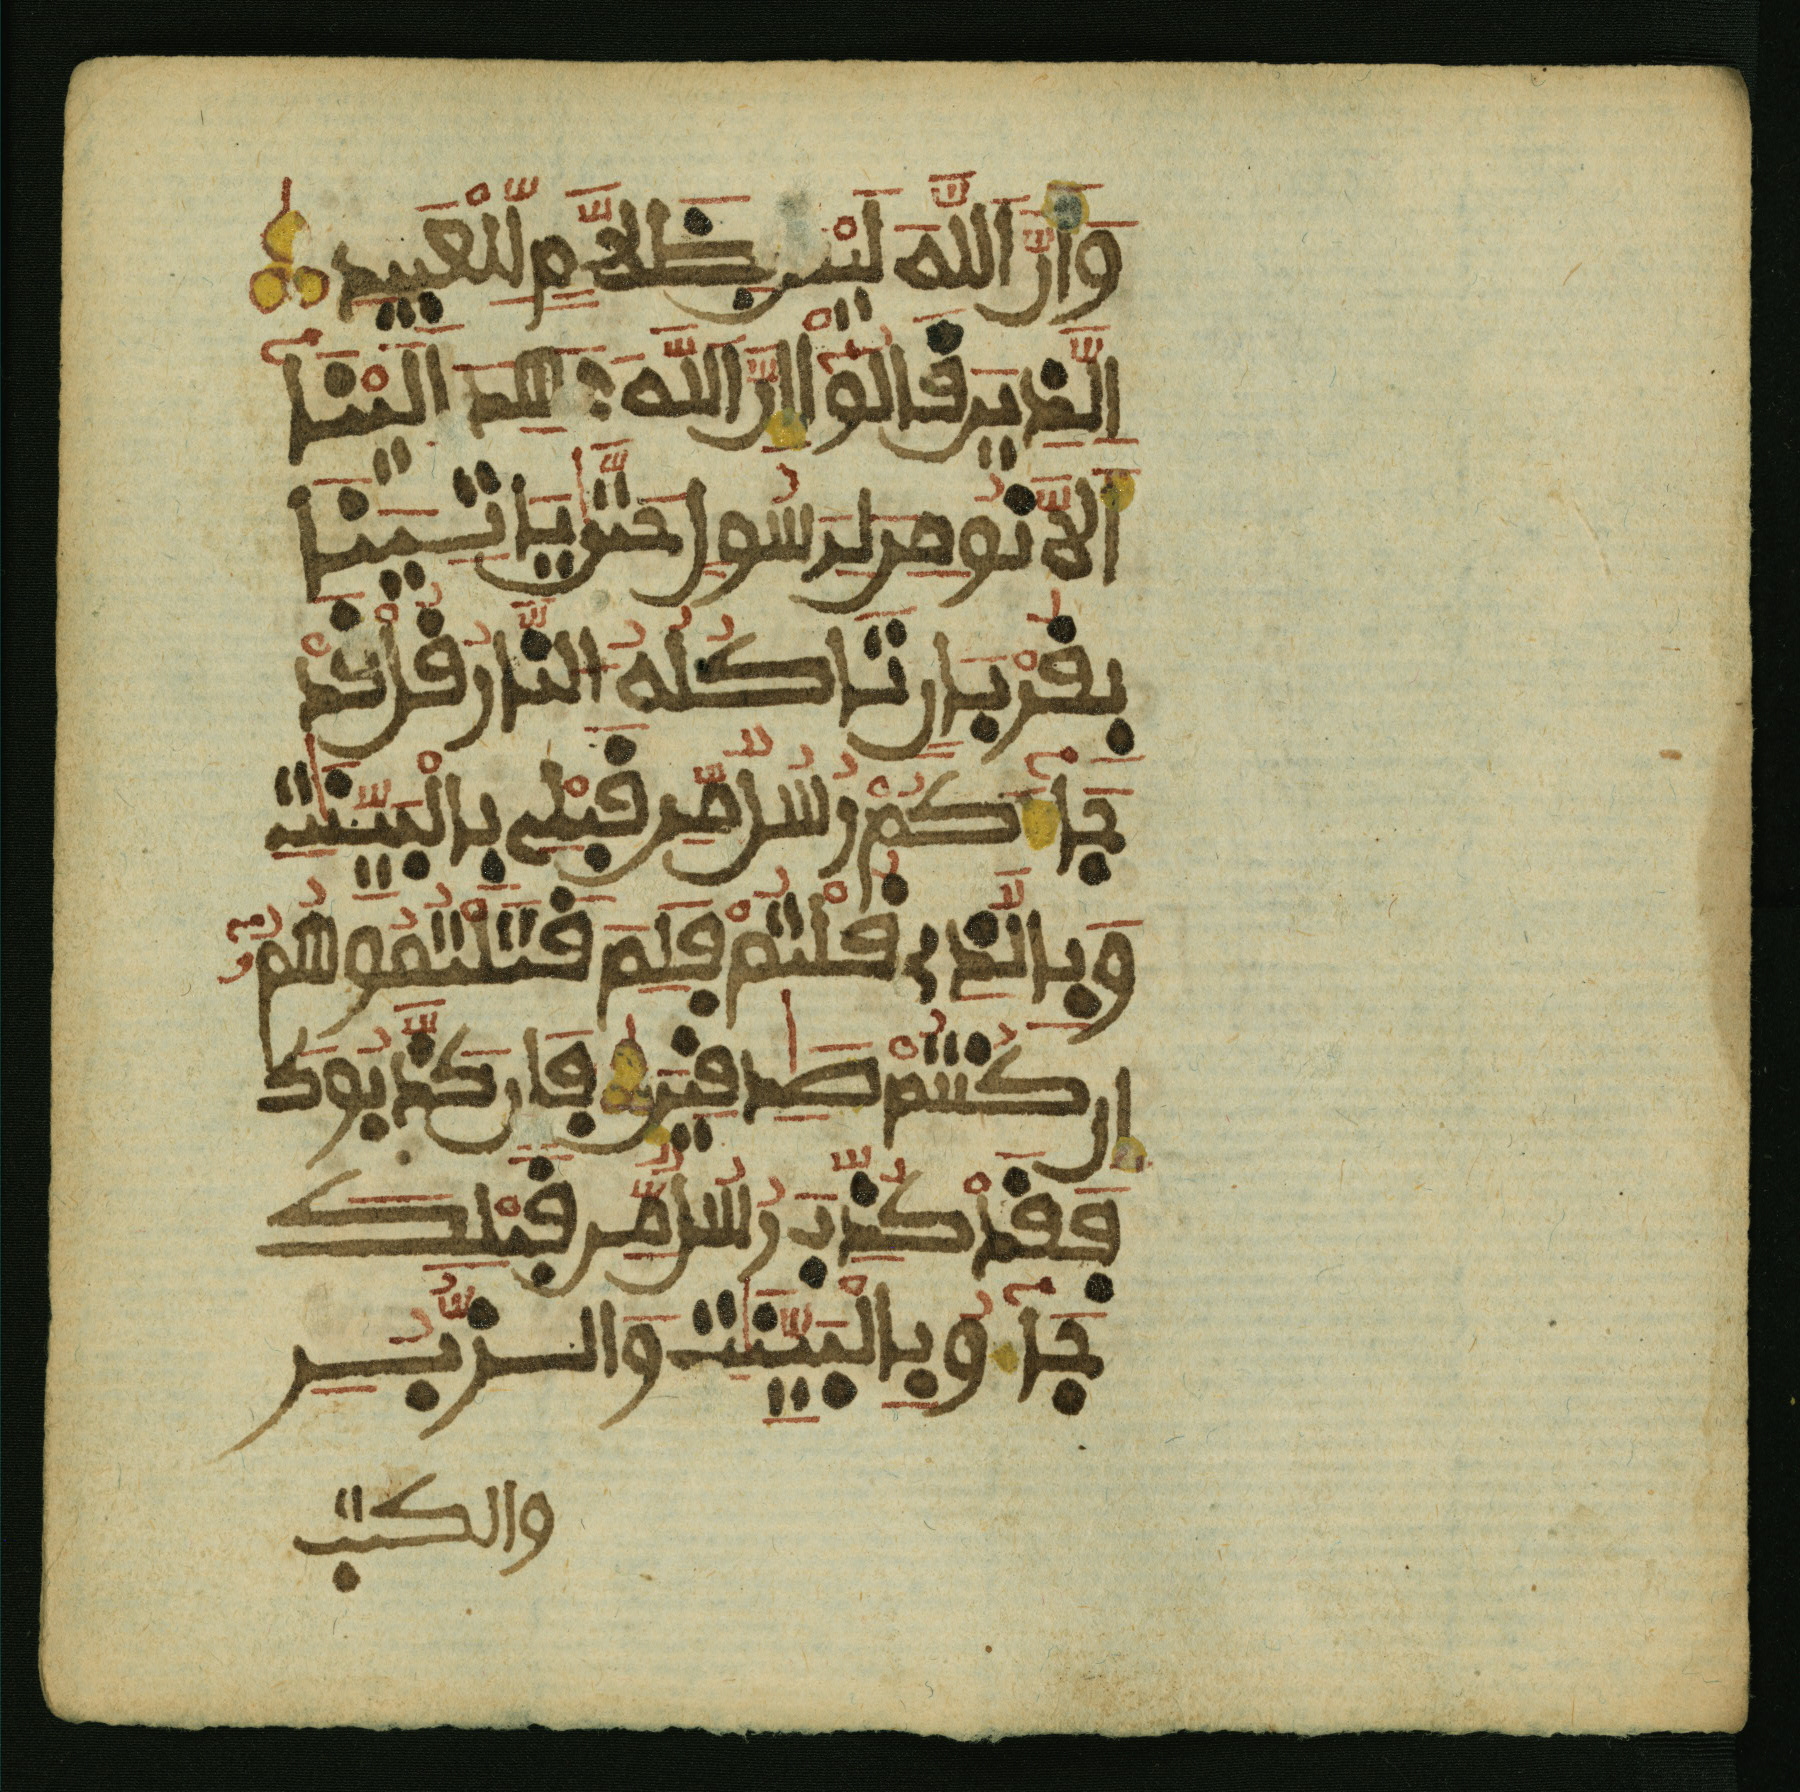 وَأَنَّ ٱللَّهَ لَيْسَ بِظَلَّٰمٖ لِّلْعَبِيدِ
ٱلَّذِينَ قَالُوٓاْ إِنَّ ٱللَّهَ عَهِدَ إِلَيْنَآ
أَلَّا نُومِنَ لِرَسُولٍ حَتَّىٰ يَاتِيَنَا
بِقُرْبَانٖ تَاكُلُهُ ٱلنَّارُ قُلْ قَدْ
جَآءَكُمْ رُسُلٞ مِّن قَبْلِي بِٱلْبَيِّنَٰتِ
وَبِٱلَّذِي قُلْتُمْ فَلِمَ قَتَلْتُمُوهُمُۥٓ
إِن كُنتُمْ صَٰدِقِينَ فَإِن كَذَّبُوكَ
فَقَدْ كُذِّبَ رُسُلٞ مِّن قَبْلِكَ
جَآءُو بِٱلْبَيِّنَٰتِ وَٱلزُّبُرِ
والكتب